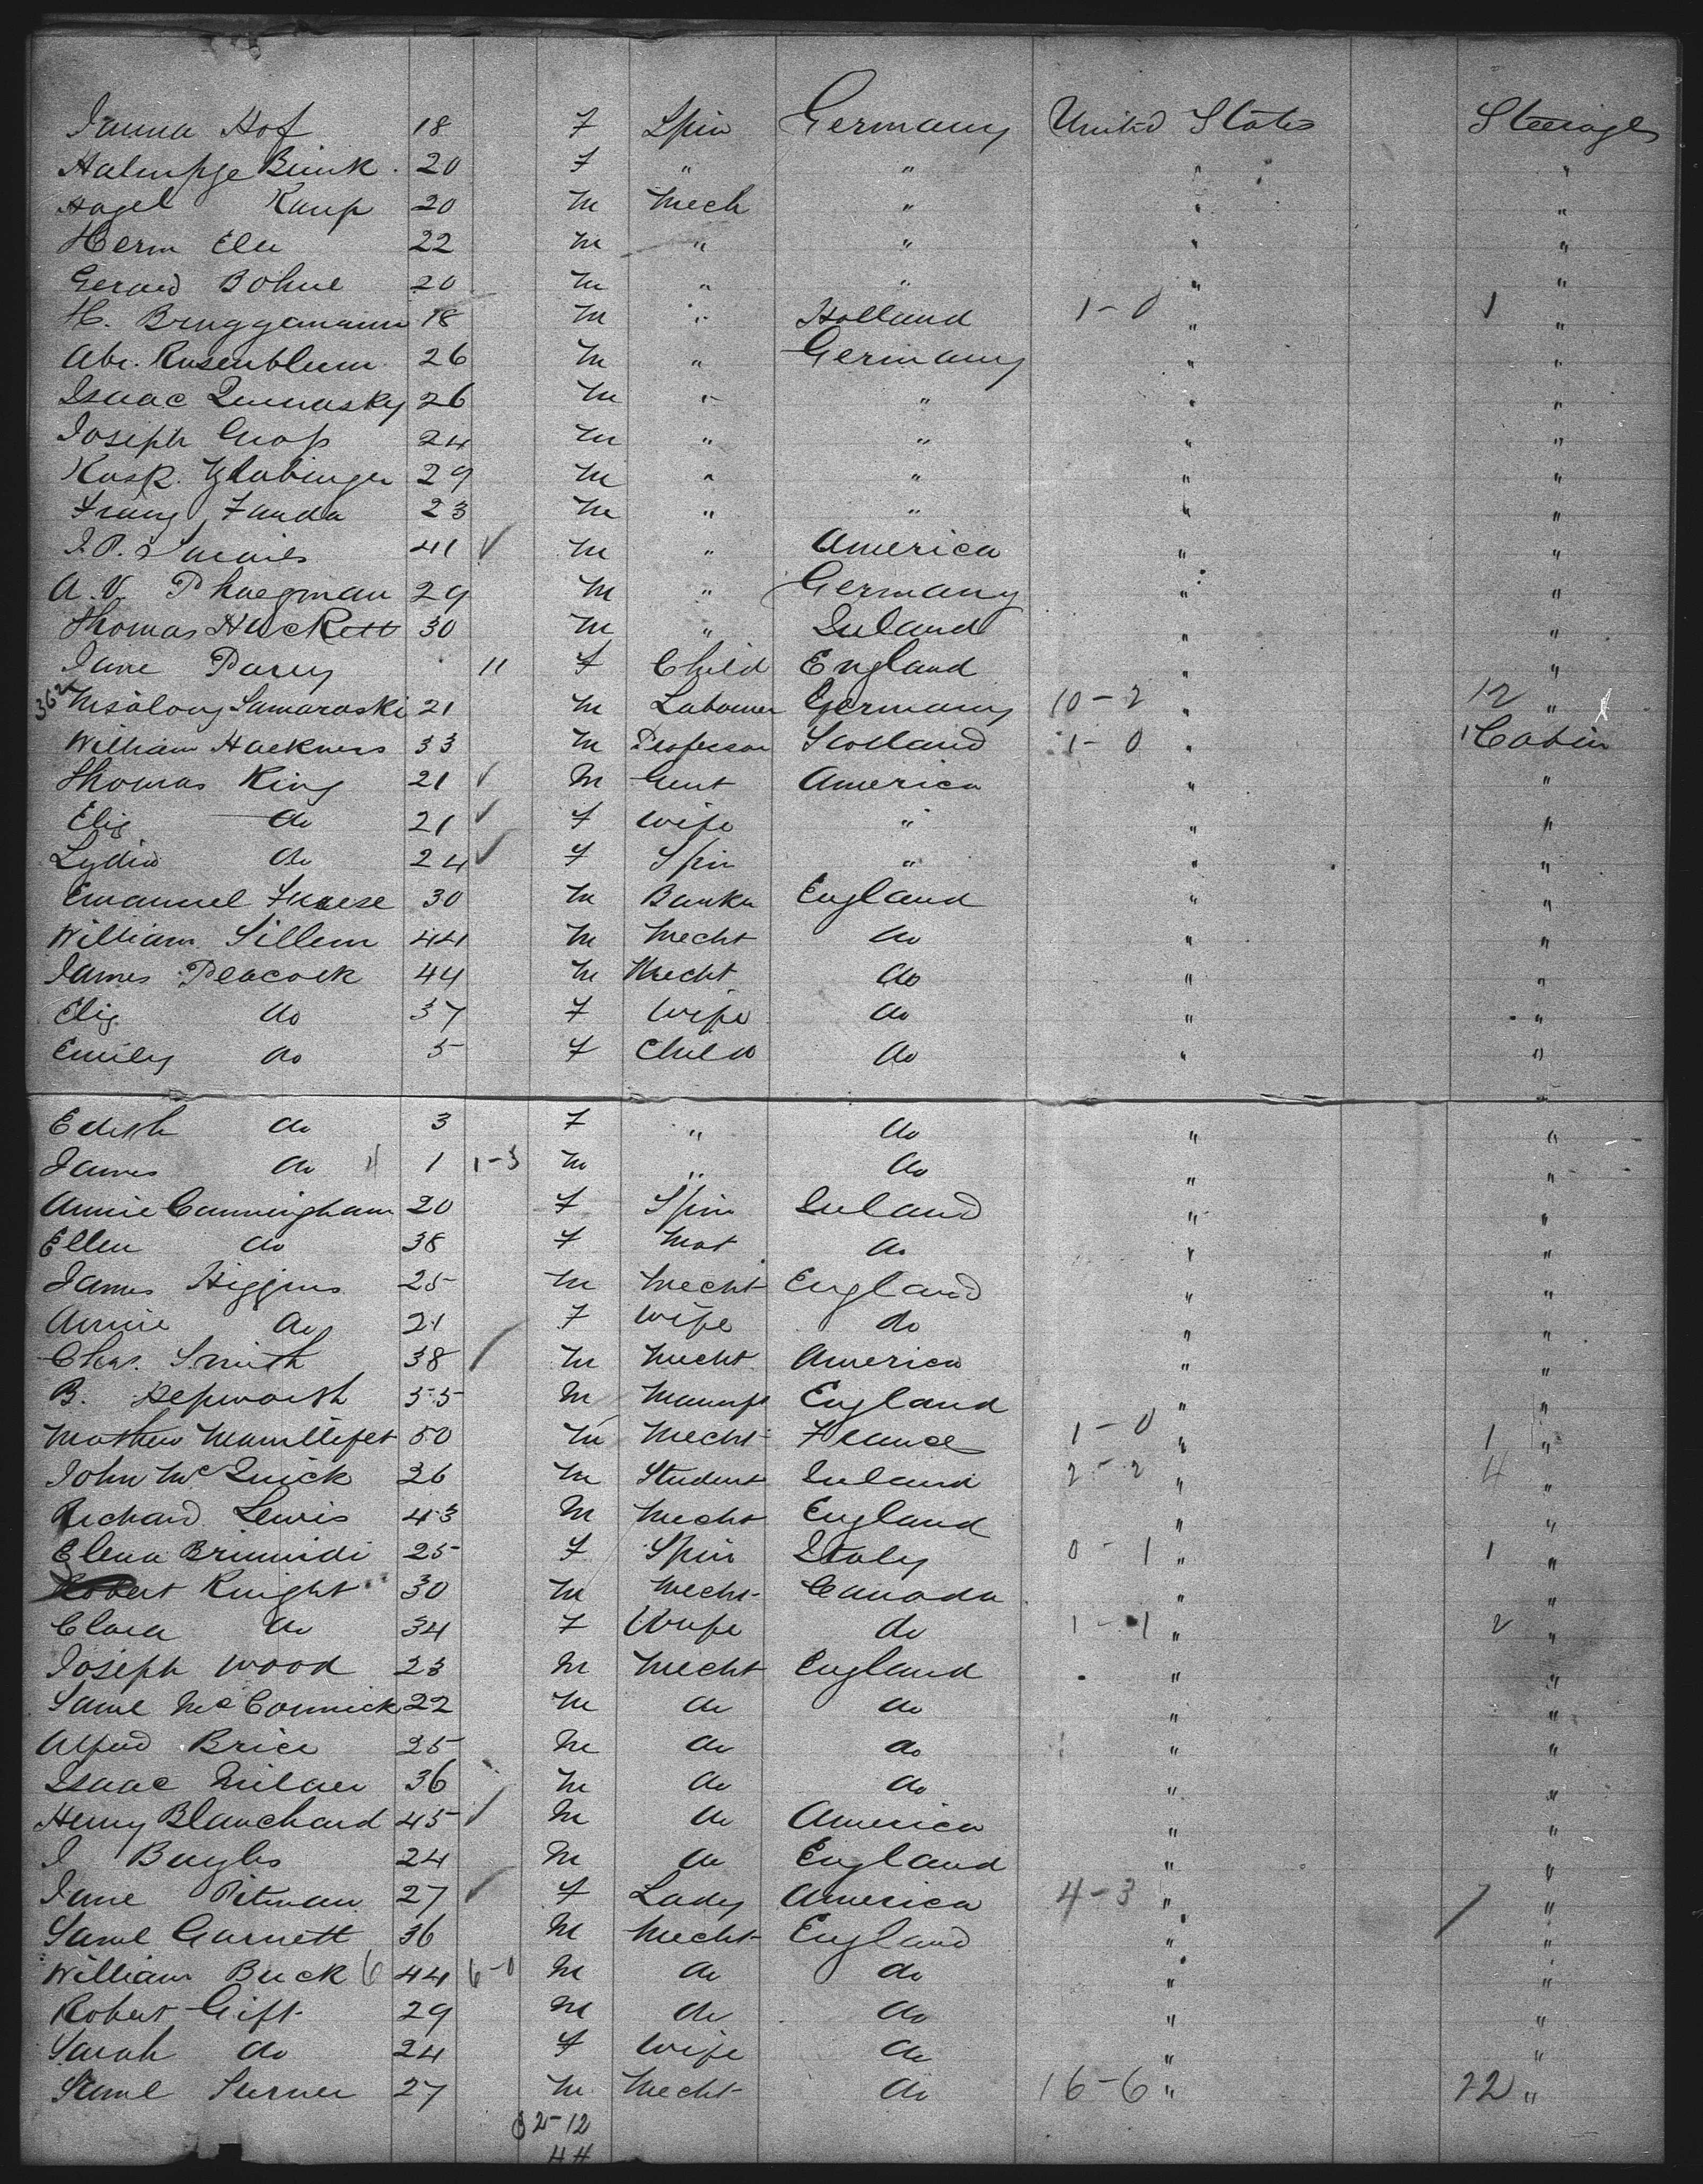 Janna Hof 18 F Spin Germany United States Steerage
Bunk 20 F " " " "
Hagel Kamp 20 M Mech " " "
Herm Elu 22 M " " " "
Gerard Bohne 20 M " " " "
H. Bruggemann 18 M " Holland 1-0 " 1 "
Abr. Rosenblum 26 M " Germany " "
Isaac 26 M " " " "
Joseph Grop 24 M " " " "
Kasp. 29 M " " " "
Franz Fanda 23 M " " " "
J.P. 41 ✓ M " America " "
A.V. 29 M " Germany " "
Thomas Hackett 30 M " Ireland " "
Jane Parry 11 F Child England " "
362 Samaraski 21 M Labourer Germany 10-2 " 12 "
William Hackness 33 M Professor Scotland 1-0 " 1 Cabin
Thomas King 21 ✓ M Gent America " "
Eliz do 21 ✓ F Wife " " "
Lydia do 24 ✓ F Spin " " "
Emanuel 30 M Banker England " "
William Sillem 44 M Mecht do " "
James Peacock 44 M Mecht do " "
Eliz do 37 F Wife do " "
Emily do 5 F Child do " "
"
Edith do 3 F " do " "
James do 11 1 1-3 M " do " "
Annie Cunningham 20 F Spin Ireland " "
Ellen do 38 F Mat do " "
James Higgins 25 M Mecht England " "
Annie do 21 F Wife do " "
Chas. Smith 38 ✓ M Mecht America " "
B. Hepworth 55 M Manuf England " "
Mathew 50 M Mecht France 1-0 " 1 "
John McQuick 26 M Student Ireland 2-2 " 4 "
Richard Lewis 43 M Mecht England " "
Elena Brimidi 25 F Spin Italy 0-1 " 1 "
Robert Knight 30 M Mecht Canada " "
Clara do 34 F Wife do 1-1 " 2 "
Joseph Wood 23 M Mecht England " "
Saml McCormick 22 M do do " "
Alfred Brice 25 M do do " "
Isaac Milner 36 M do do " "
Henry Blanchard 45 ✓ M do America " "
J Bayles 24 M do England " "
Jane Pitman 27 ✓ F Lady America 4-3 " 7 "
Saml Garnett 36 M Mecht England " "
William Buck 6 44 6-0 M do do " "
Robert Gift 29 M do do " "
Sarah do 24 F Wife do " "
Saml Turner 27 M Mecht do 16-6 " 22 "
32-12
44